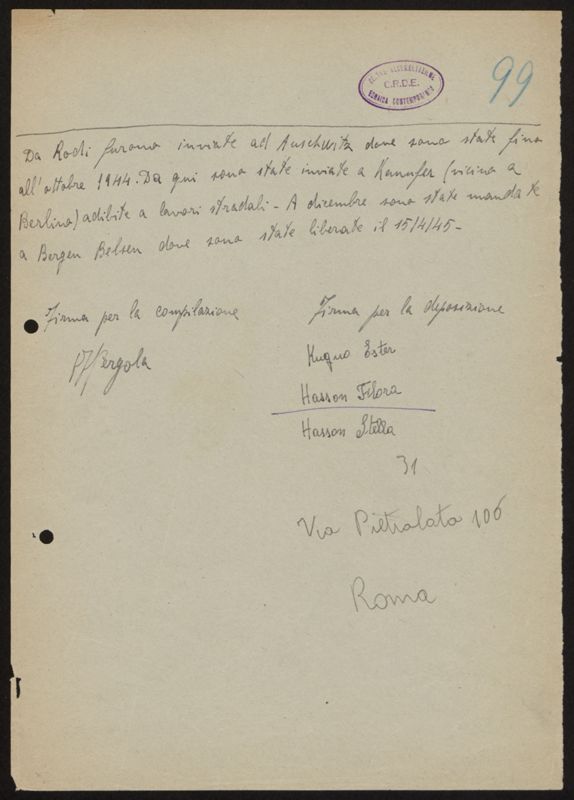 99
CENTRO DI DOCUMENTAZIONE
C.R.D.E.
EBRAICA CONTEMPORANEA
Da Rodi furono inviate ad Auschwitz dove sono state fino
all'ottobre 1944. Da qui sono state inviate a Kaunfer (vicino a
Berlino) adibite a lavori stradali - A dicembre sono state mandate
a Bergen Belsen dove sono state liberate il 15/4/45 -
Firma per la compilazione
Firma per la deposizione
Bergola
Kugno Ester
Hasson Flora
Hasson Stella
31
Via Pietralata 106
Roma